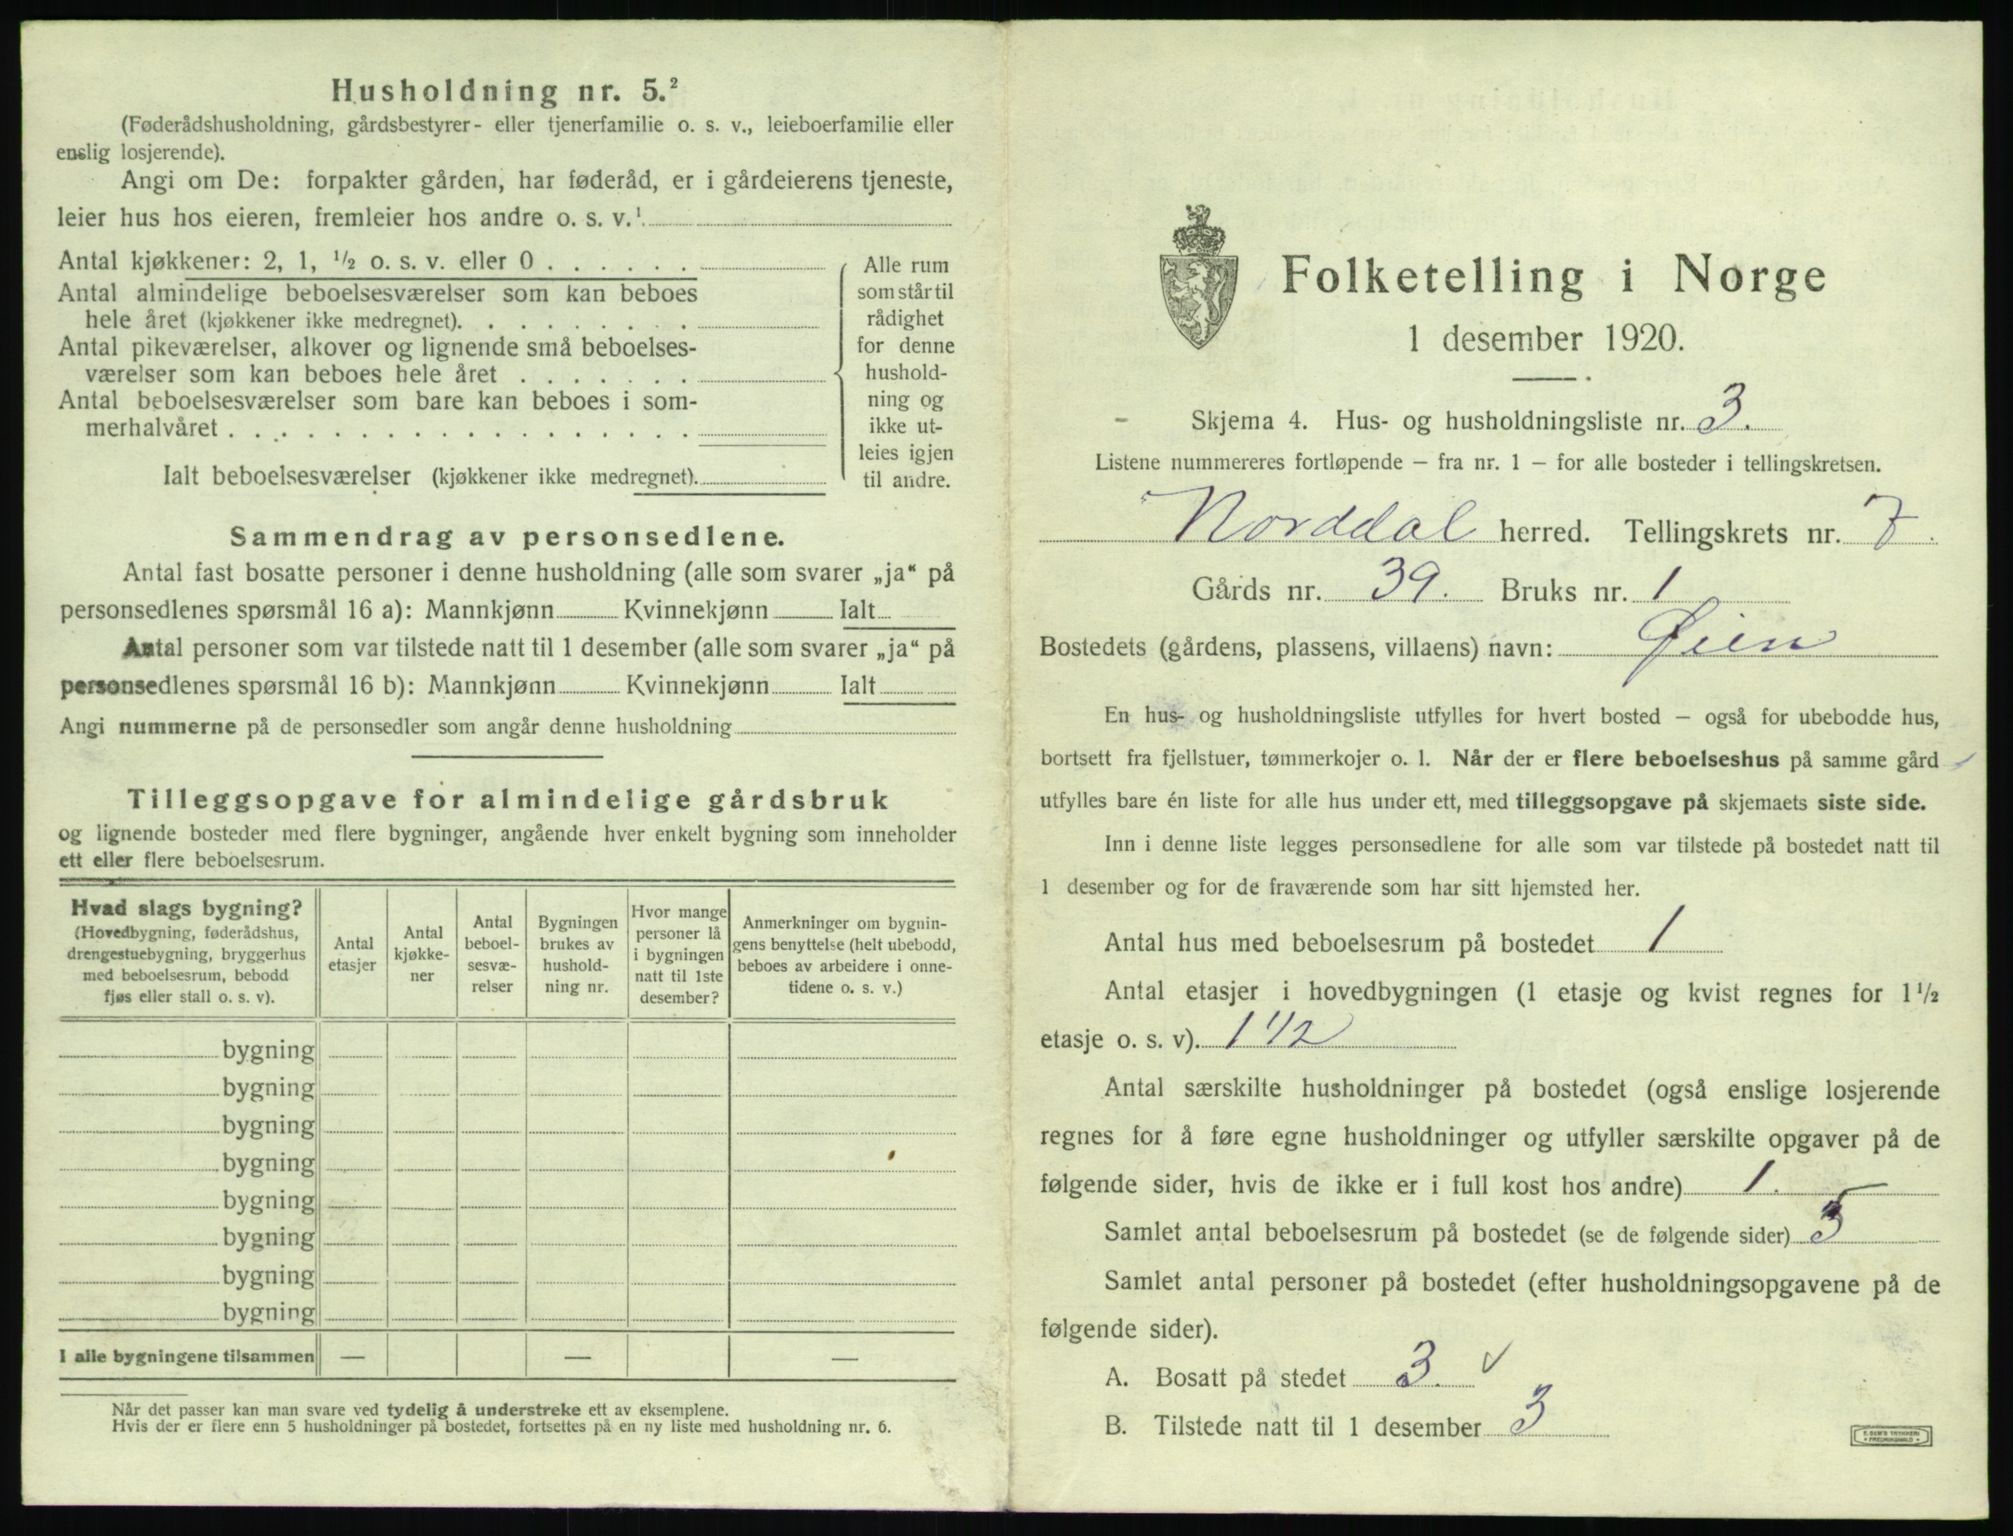 Husholdning nr. 5.²
(Føderådshusholdning, gårdsbestyrer- eller tjenerfamilie o. s. v., leieboerfamilie eller
enslig losjerende).
Angi om De: forpakter gården, har føderåd, er i gårdeierens tjeneste,
leier hus hos eieren, fremleier hos andre o. s. v.¹
Antal kjøkkener: 2, 1, ½ o. s. v. eller 0
Antal almindelige beboelsesværelser som kan beboes
hele året (kjøkkener ikke medregnet).
Antal pikeværelser, alkover og lignende små beboelses-
værelser som kan beboes hele året
Antal beboelsesværelser som bare kan beboes i som-
merhalvåret
Ialt beboelsesværelser (kjøkkener ikke medregnet).
Alle rum
som står til
rådighet
for denne
hushold-
ning og
ikke ut-
leies igjen
til andre.
Sammendrag av personsedlene.
Antal fast bosatte personer i denne husholdning (alle som svarer „ja“ på
personsedlenes spørsmål 16 a): Mannkjønn Kvinnekjønn Ialt
Antal personer som var tilstede natt til 1 desember (alle som svarer „ja“ på
personsedlenes spørsmål 16 b): Mannkjønn Kvinnekjønn Ialt
Angi nummerne på de personsedler som angår denne husholdning
Tilleggsopgave for almindelige gårdsbruk
og lignende bosteder med flere bygninger, angående hver enkelt bygning som inneholder
ett eller flere beboelsesrum.
Hvad slags bygning?
(Hovedbygning, føderådshus,
drengestuebygning, bryggerhus
med beboelsesrum, bebodd
fjøs eller stall o. s. v).
Antal
etasjer
Antal
kjøkke-
ner
Antal
beboel-
sesvæ-
relser
Bygningen
brukes av
hushold-
ning nr.
Hvor mange
personer lå
i bygningen
natt til 1ste
desember?
Anmerkninger om bygnin-
gens benyttelse (helt ubebodd,
beboes av arbeidere i onne-
tidene o. s. v.)
bygning
bygning
bygning
bygning
bygning
bygning
bygning
bygning
I alle bygningene tilsammen — — —
Når det passer kan man svare ved tydelig å understreke ett av eksemplene.
Hvis der er flere enn 5 husholdninger på bostedet, fortsettes på en ny liste med husholdning nr. 6.
Folketelling i Norge
1 desember 1920.
Skjema 4. Hus- og husholdningsliste nr. 3.
Listene nummereres fortløpende – fra nr. 1 – for alle bosteder i tellingskretsen.
Norddal herred. Tellingskrets nr. 7.
Gårds nr. 39. Bruks nr. 1
Bostedets (gårdens, plassens, villaens) navn: Øien
En hus- og husholdningsliste utfylles for hvert bosted – også for ubebodde hus,
bortsett fra fjellstuer, tømmerkojer o. l. Når der er flere beboelseshus på samme gård
utfylles bare én liste for alle hus under ett, med tilleggsopgave på skjemaets siste side.
Inn i denne liste legges personsedlene for alle som var tilstede på bostedet natt til
1 desember og for de fraværende som har sitt hjemsted her.
Antal hus med beboelsesrum på bostedet 1
Antal etasjer i hovedbygningen (1 etasje og kvist regnes for 1½
etasje o. s. v). 1 1/2
Antal særskilte husholdninger på bostedet (også enslige losjerende
regnes for å føre egne husholdninger og utfyller særskilte opgaver på de
følgende sider, hvis de ikke er i full kost hos andre) 1.
Samlet antal beboelsesrum på bostedet (se de følgende sider) 5
Samlet antal personer på bostedet (efter husholdningsopgavene på de
følgende sider).
A. Bosatt på stedet 3. ✓
B. Tilstede natt til 1 desember 3